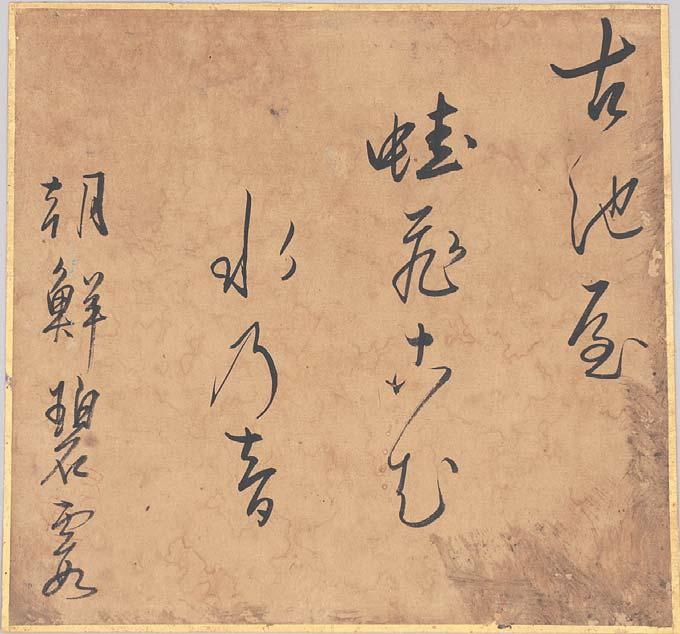 古池屋
蛙飛古む
水乃音
朝鮮碧霞